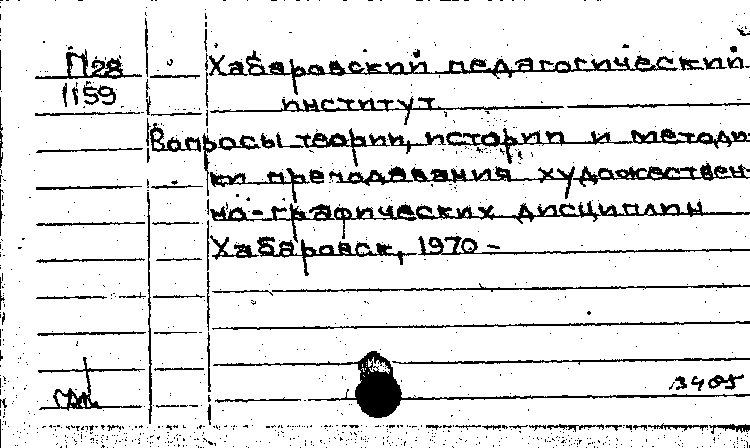 П28 Хабаровский педагогический
1159 институт.
Вопросы теории, истории и методи-
ки преподавания художествен-
но-графических дисциплин
Хабаровск, 1970 -
3405